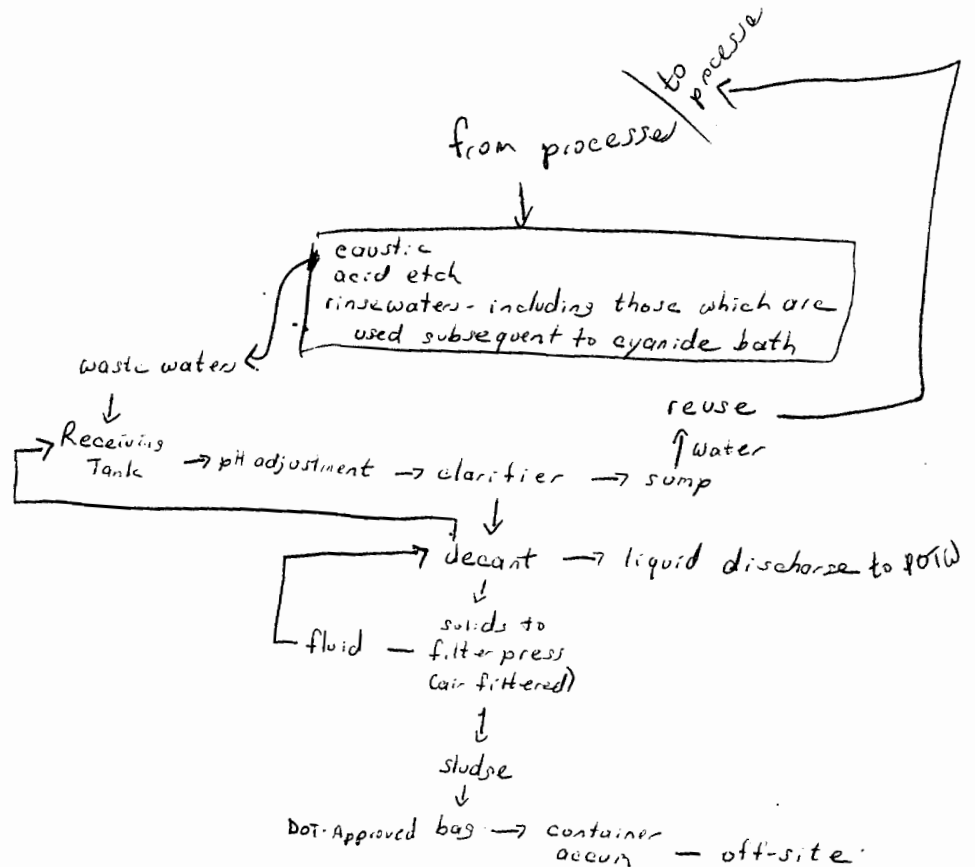 to
processe
from processe
caustic
acid etch
rinsewaters - including those which are
used subsequent to cyanide bath
waste waters
reuse
water
Receiving
Tank → pH adjustment → clarifier → sump
decant → liquid discharge to POTW
solids to
fluid — filter press
(air filtered)
sludge
DOT-Approved bag → container
accum — off-site